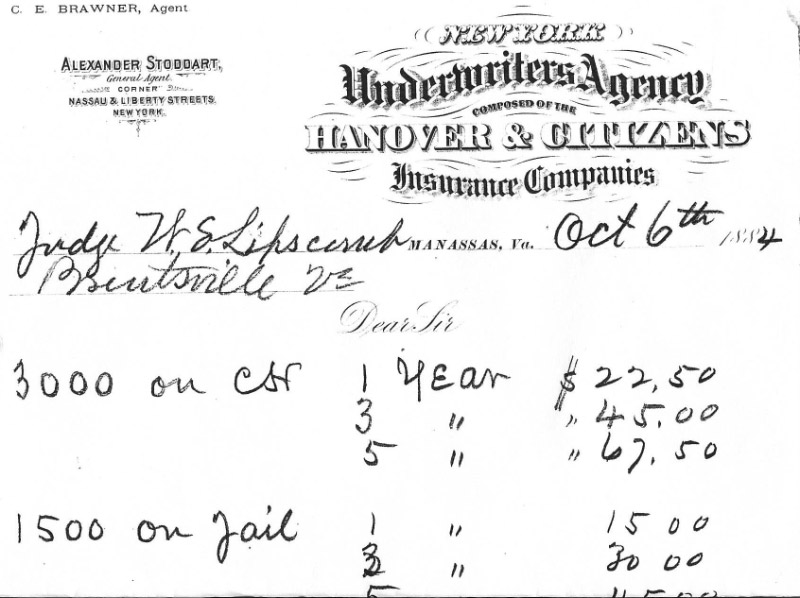 C. E. BRAWNER, Agent
ALEXANDER STODDART,
General Agent.
CORNER
NASSAU & LIBERTY STREETS.
NEW YORK.
NEW YORK
Underwriters Agency
COMPOSED OF THE
HANOVER & CITIZENS
Insurance Companies
Judge W. E. Lipscomb MANASSAS, Va. Oct 6th 1884
Brentsville Va
Dear Sir
3000 on CH 1 YEAR $ 22.50
3 " " 45.00
5 " " 67.50
1500 on Jail 1 " 15 00
3 " 30 00
5 45 00